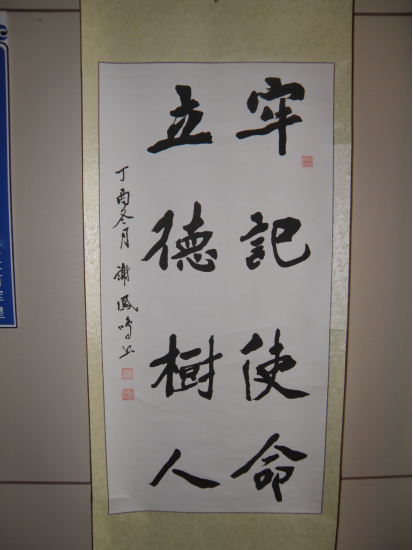 牢記使命
立德樹人
丁酉冬月 謝鳳鳴书